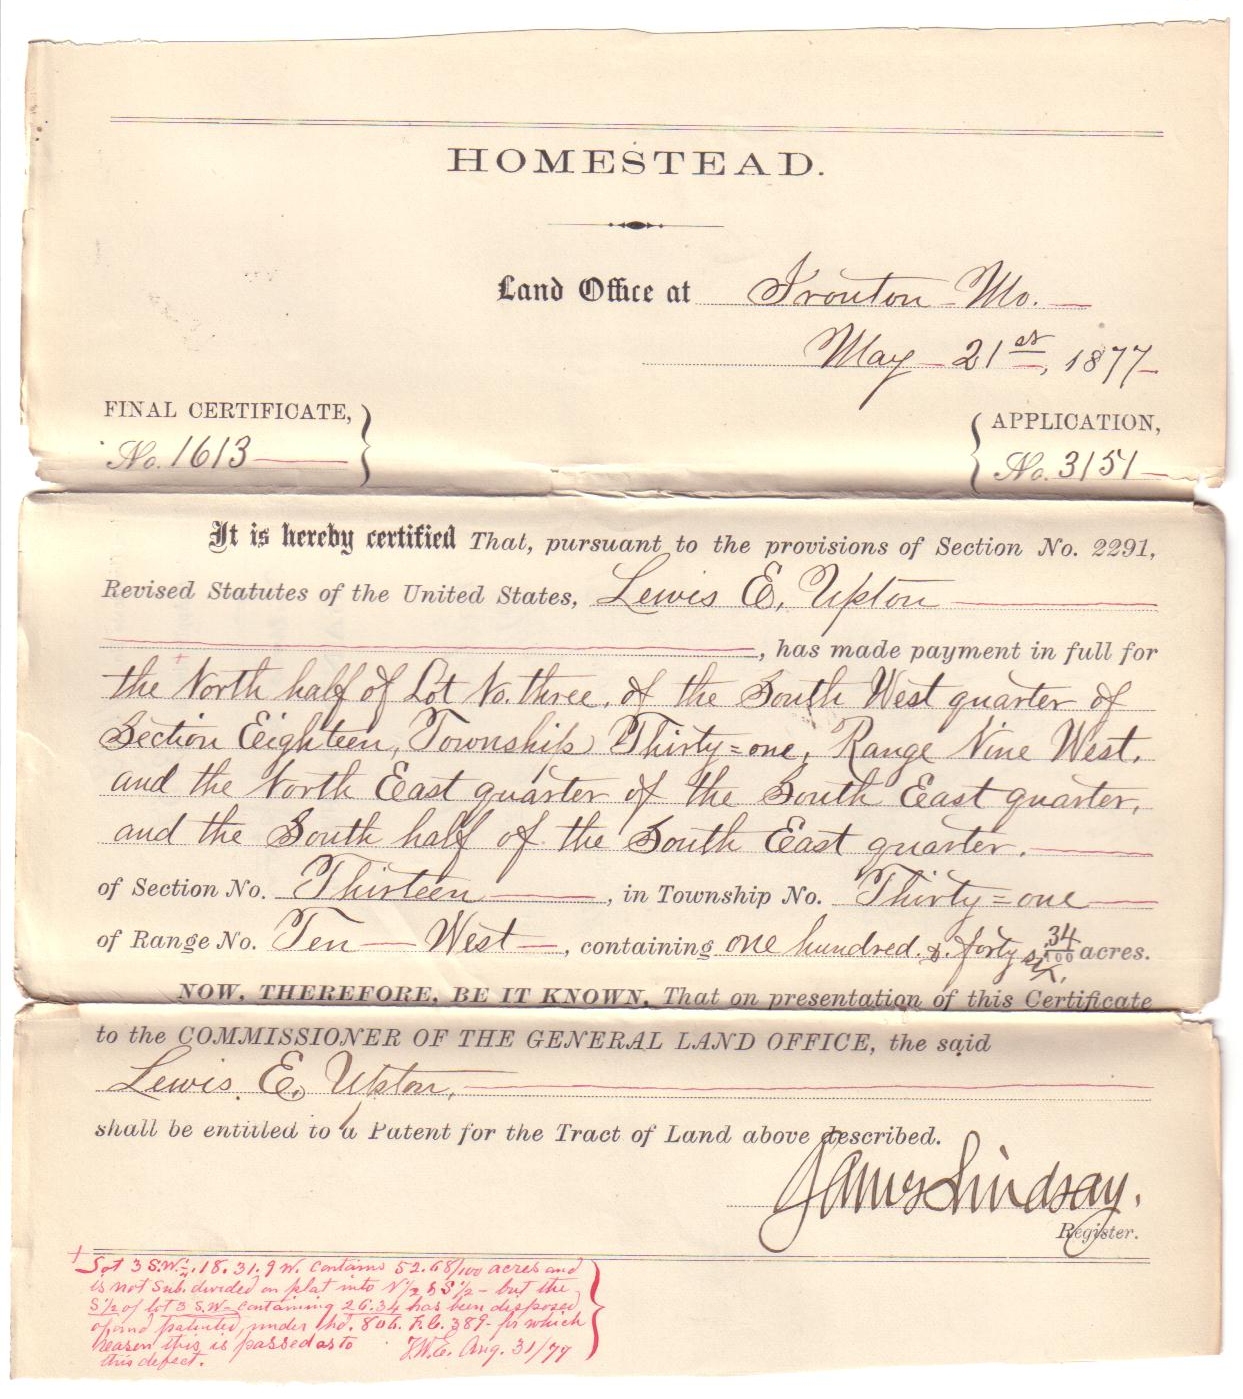 HOMESTEAD.
Land Office at Ironton Mo.
May 21st, 1877
FINAL CERTIFICATE,
No. 1613
APPLICATION,
No. 3151
It is hereby certified That, pursuant to the provisions of Section No. 2291,
Revised Statutes of the United States, Lewis E. Upton
, has made payment in full for
the North half of Lot No. three, of the South West quarter of
Section Eighteen, Township Thirty=one, Range Nine West,
and the North East quarter of the South East quarter,
and the South half of the South East quarter.
of Section No. Thirteen, in Township No. Thirty=one
of Range No. Ten West, containing one hundred & forty six 34/100 acres.
NOW, THEREFORE, BE IT KNOWN, That on presentation of this Certificate
to the COMMISSIONER OF THE GENERAL LAND OFFICE, the said
Lewis E. Upton,
shall be entitled to a Patent for the Tract of Land above described.
James Lindsay.
Register.
+ Lot 3 S.W. 18. 31. 9 W. contains 52.68/100 acres and
is not Subdivided on plat into N½ & S½ - but the
S½ of lot 3 S.W. containing 26.34 has been disposed
of and patented, under Hd. 806. F.C. 389- for which
reason this is passed as to
this defect. Aug. 31/77